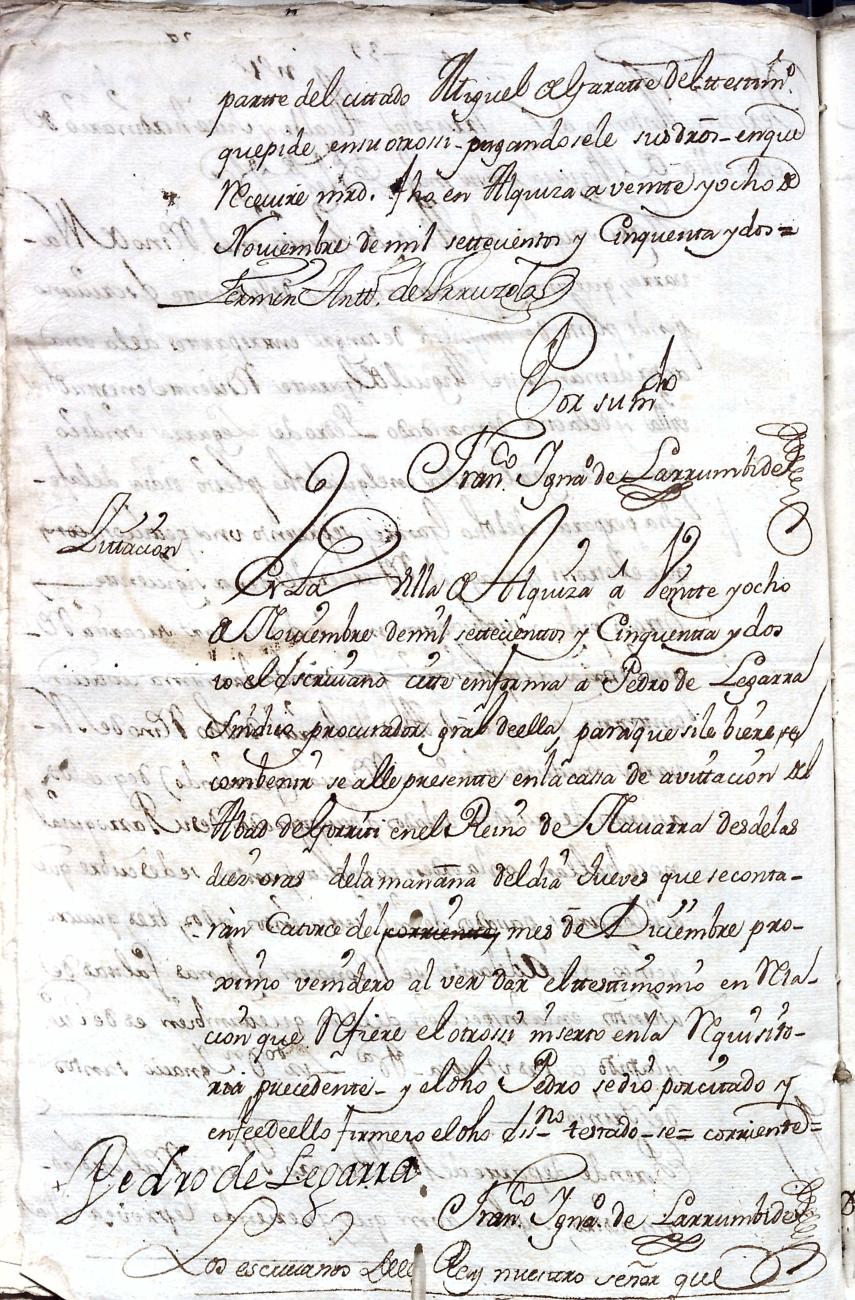 parte del cittado Miguel de Garatte del testim.º
que pide en su otrossi pagandosele sus dros en que
Receuire mrd. fho en Alquiza a veinte y ocho de
Noviembre de mil settecientos y Cinquenta y dos =
Fermin Antt.º de Urruzola
Por su mdo
Fran.co Ygn.º de Larrumbide
Cittacion
En La Villa de Alquiza á Veintte y ocho
de Noviembre de mil settecienttos y Cinquentta y dos
io el Escriuano citte en forma a Pedro de Legarra
Sindico procurador gral de ella, para que si le biere se
combenir se alle presentte en la casa de avittacion del
Abad de Gorriti en el Reino de Navarra desde las
diez oras de la mañana del dia Jueves que se conta-
ran Catorce del corriente mes de Diciembre pro-
ximo venidero al ver dar el testimonio en Rela-
cion que Refiere el otrossi inserto en la Requisito-
ria precedente - y el dho Pedro, se dio por citado y
en fee de ello firme io el dho ess.no testado - se = corriente =
Pedro de Legarra
Fran.co Ygn.º de Larrumbide
Los escriuanos del Rey nuestro señor que